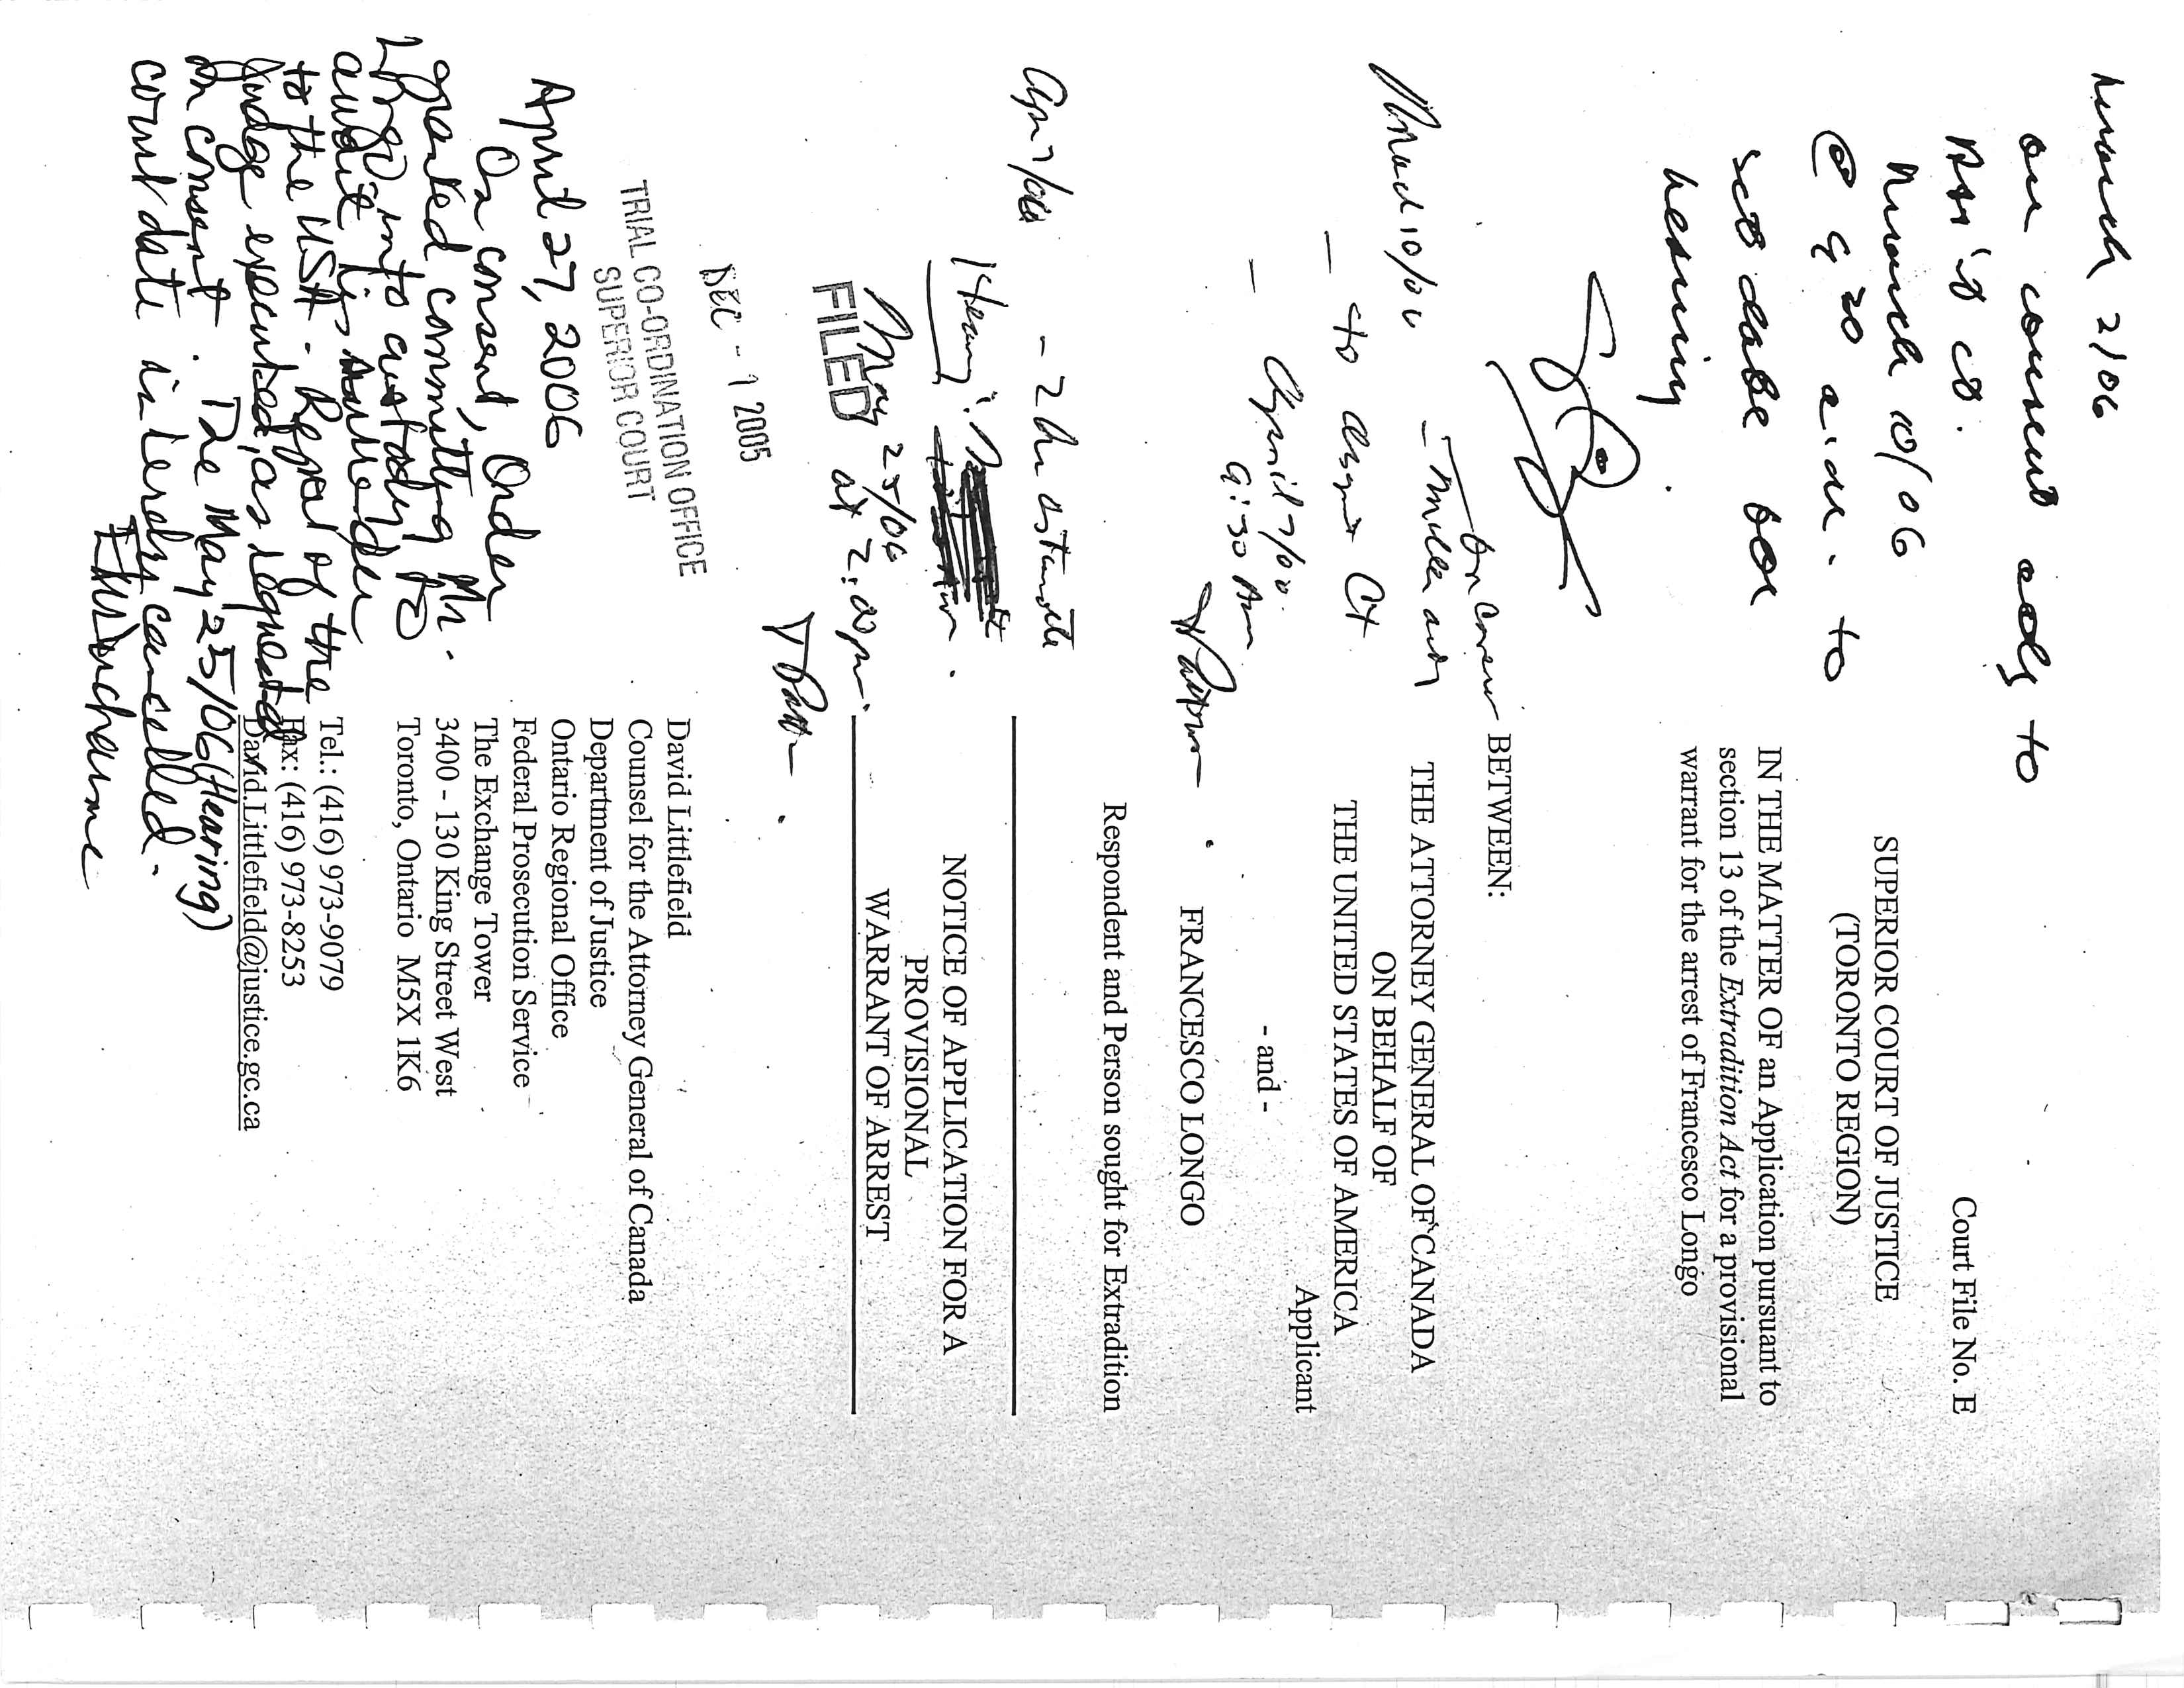 March 2/06
on consent adj to
Prac ct.
March 10/06
@ 9 30 a.m. to
set date for
hearing.
March 10/06
to assgnt Ct
April 7/06.
9:30 Am
- 2 hr estimate
Hearing:
May 25/06
at 2:00pm.
FILED
DEC - 1 2005
TRIAL CO-ORDINATION OFFICE
SUPERIOR COURT
April 27, 2006
On consent, Order
granted committing Mr.
Longo into custody to
await his surrender
to the USA. Repat of the
Judge executed, as requested
on consent. The May 25/06 (Hearing)
court date is hereby cancelled.
Court File No. E
SUPERIOR COURT OF JUSTICE
(TORONTO REGION)
IN THE MATTER OF an Application pursuant to
section 13 of the Extradition Act for a provisional
warrant for the arrest of Francesco Longo
BETWEEN:
THE ATTORNEY GENERAL OF CANADA
ON BEHALF OF
THE UNITED STATES OF AMERICA
Applicant
- and -
FRANCESCO LONGO
Respondent and Person sought for Extradition
NOTICE OF APPLICATION FOR A
PROVISIONAL
WARRANT OF ARREST
David Littlefield
Counsel for the Attorney General of Canada
Department of Justice
Ontario Regional Office
Federal Prosecution Service
The Exchange Tower
3400 - 130 King Street West
Toronto, Ontario M5X 1K6
Tel.: (416) 973-9079
Fax: (416) 973-8253
David.Littlefield@justice.gc.ca